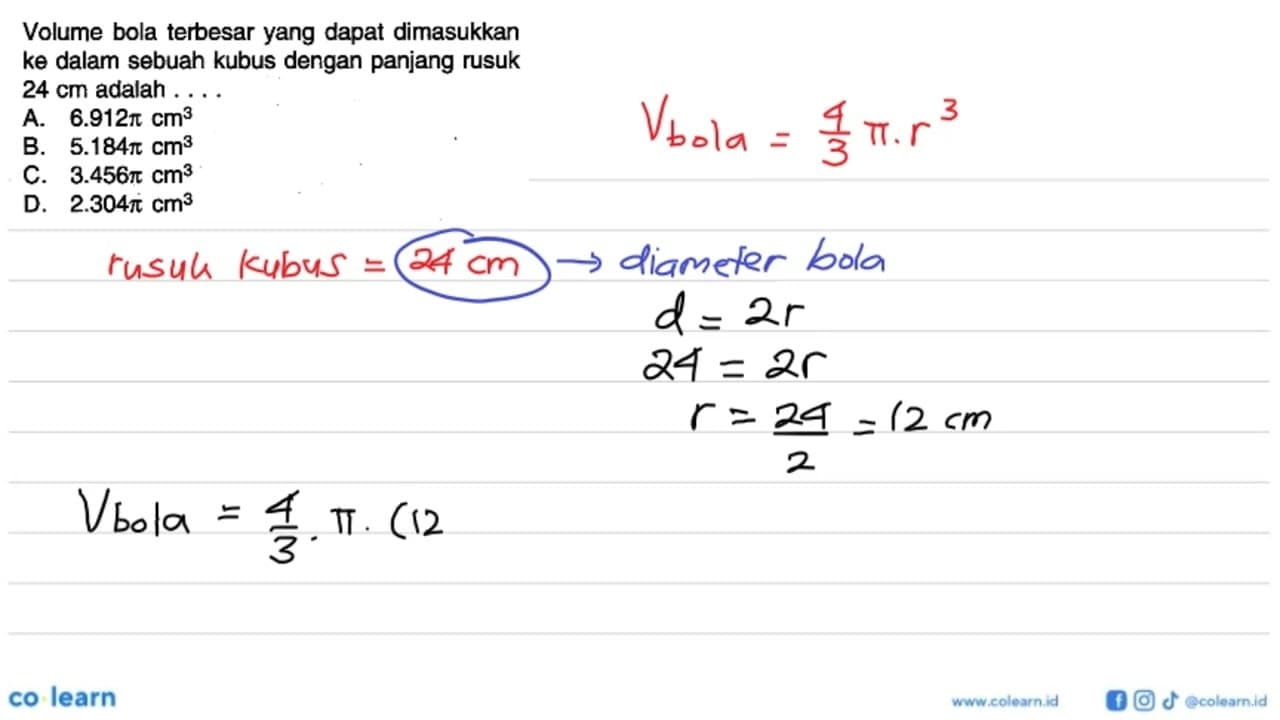 Volume bola terbesar yang dapat dimasukkan
ke dalam sebuah kubus dengan panjang rusuk
24 cm adalah . . . .
A. 6.912π cm³
B. 5.184π cm³
C. 3.456π cm³
D. 2.304π cm³
Vbola = 4/3 π . r³
rusuk kubus = 24 cm → diameter bola
d = 2r
24 = 2r
r = 24/2 = 12 cm
Vbola = 4/3 . π . (12
co learn
www.colearn.id
@colearn.id